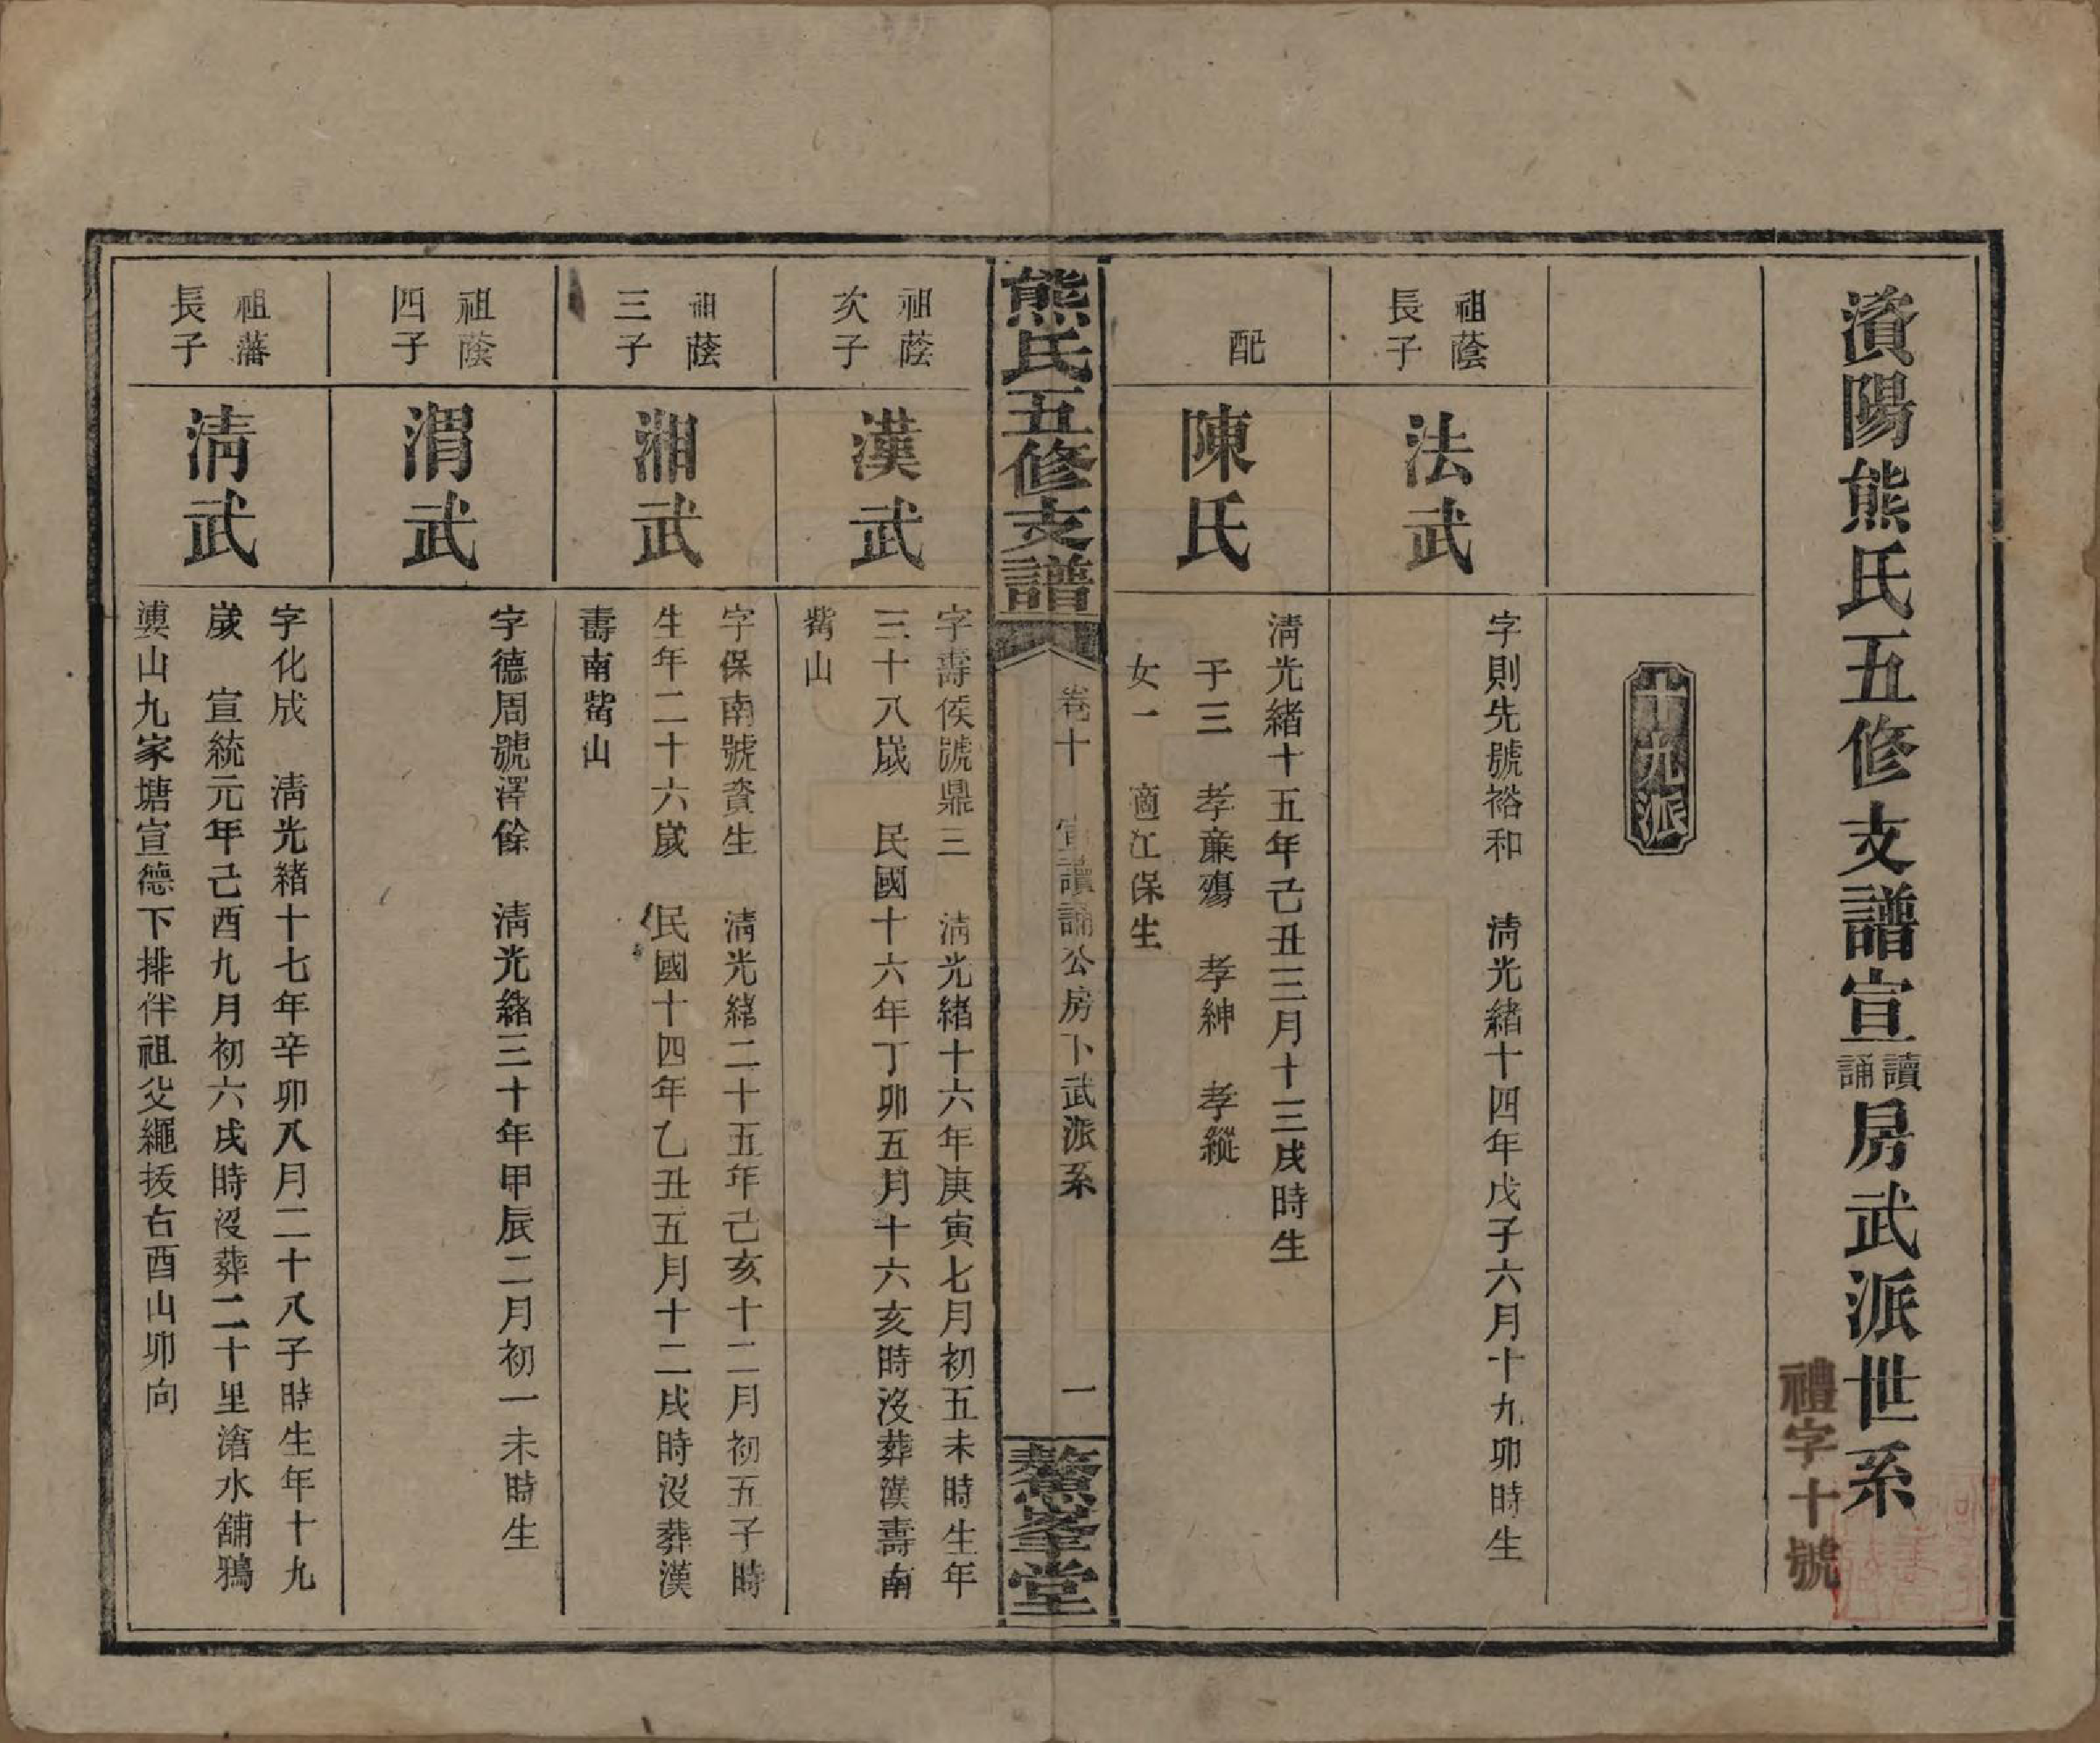 資陽熊氏五修支譜宣讀誦房武派世系
禮字十號
十九派
祖蔭
長子
法武
字則先號裕和　清光緒十四年戊子六月十九卯時生
配
陳氏
清光緒十五年己丑三月十三戌時生
子三　孝蕙殤　孝紳　孝縱
女一　適江保生
熊氏五修支譜
卷十　宣讀誦公房下武派系
一
鰲峯堂
祖蔭
次子
漢武
字壽侯號鼎三　清光緒十六年庚寅七月初五未時生年
三十八歲　民國十六年丁卯五月十六亥時沒葬漢壽南
觜山
祖蔭
三子
湘武
字保南號資生　清光緒二十五年己亥十二月初五子時
生年二十六歲　民國十四年乙丑五月十二戌時沒葬漢
壽南觜山
祖蔭
四子
渭武
字德周號澤餘　清光緒三十年甲辰二月初一未時生
祖藩
長子
清武
字化成　清光緒十七年辛卯八月二十八子時生年十九
歲　宣統元年己酉九月初六戌時沒葬二十里滄水舖鴉
婁山九家塘宣德下排伴祖父繩拔右酉山卯向